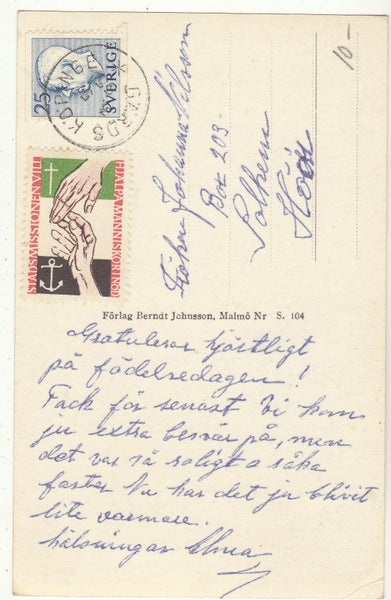 10-
25
SVERIGE
GÄRDS KÖPINGE
STADSMISSIONEN VILL
HJÄLPA MÄNNISKOR I NÖD
Fröken Johanna Nilsson
Box 209-
Solhem
Höör
Förlag Berndt Johnsson, Malmö Nr S. 104
Gratulerar hjärtligt
på födelsedagen!
Tack för senast Vi kom
ju extra besvär på, men
det var så roligt o råka
faster Nu har det ju blivit
lite varmare.
hälsningar Elma